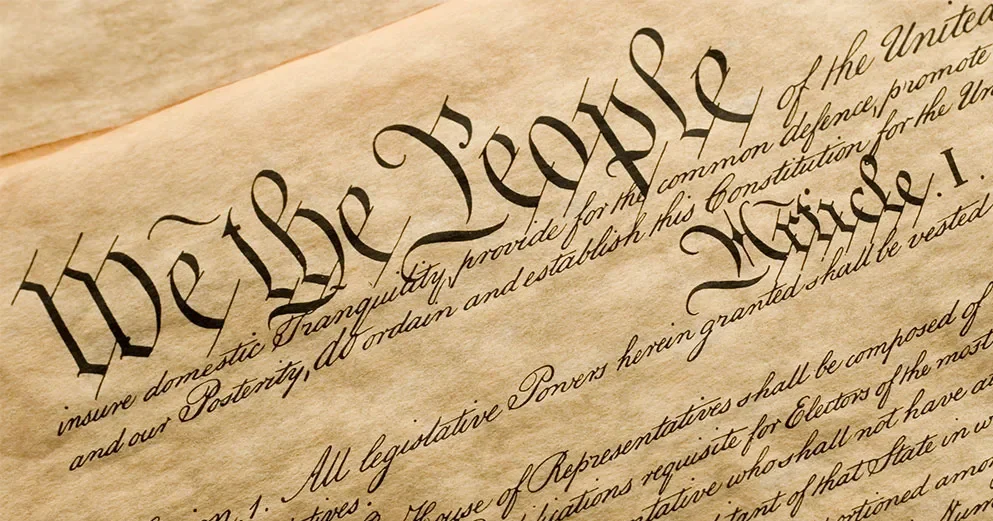 We the People of the United
insure domestic Tranquility, provide for the common defence, promote
and our Posterity, do ordain and establish this Constitution for the Un
Article. I.
All legislative Powers herein granted shall be vested
1.
House of Representatives shall be composed of
requisite for Electors of the most
who shall not have
of that State in w
among